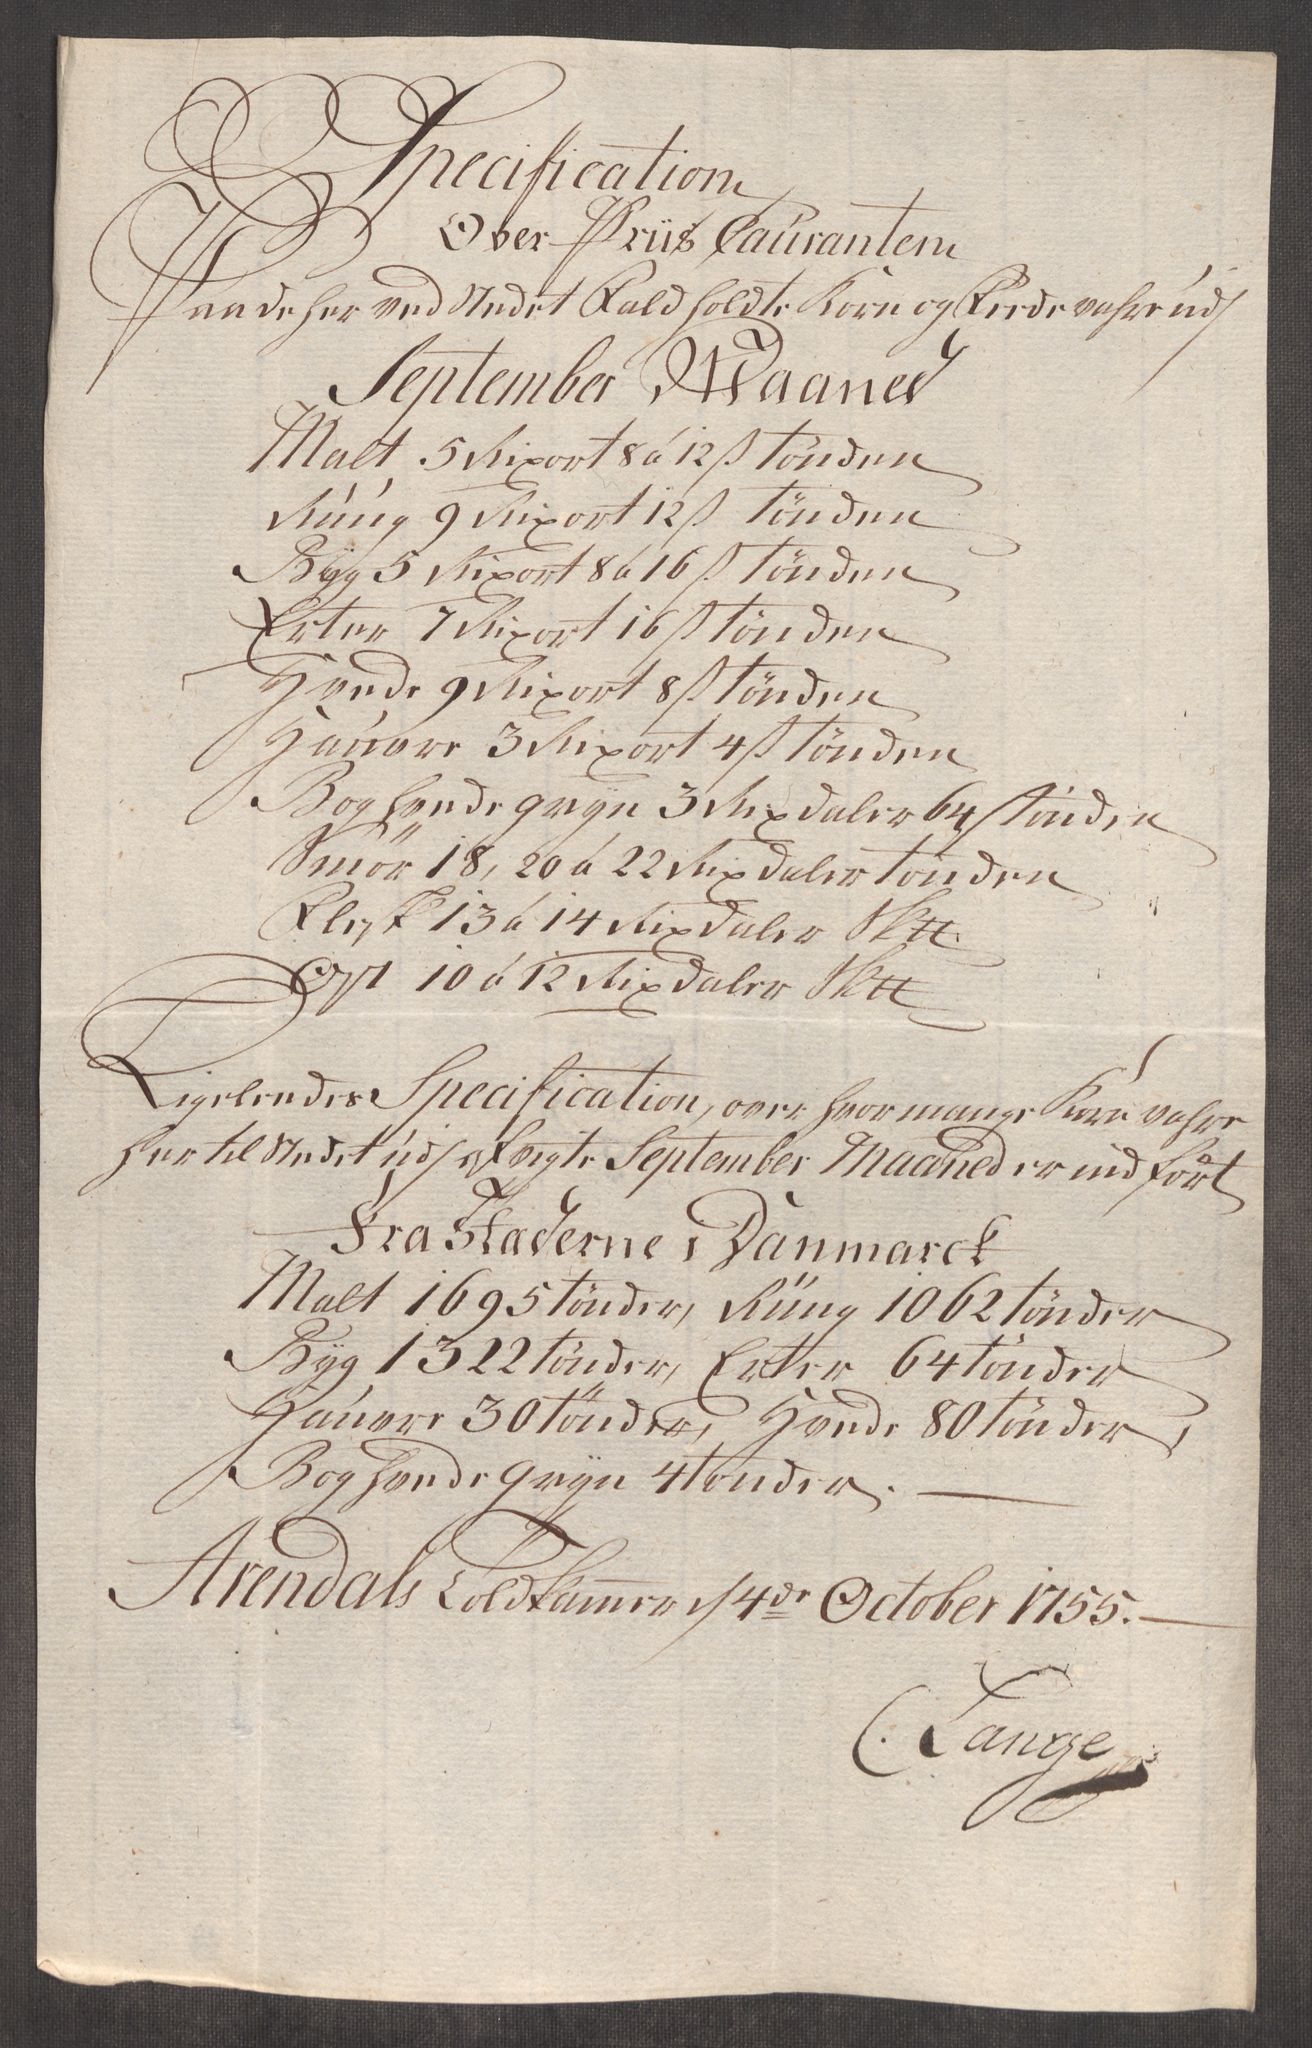 Specification
Over Priis Caurantem
Paa de her ved Stedet Fald holdte Korn og Feede vahre udj
September Maaned
Malt 5 Rixort 8 á 12 ß tönden
Rúúg 9 Rixort 12 ß tönden
Byg 5 Rixort 8 á 16 ß tönden
Erter 7 Rixort 16 ß tönden
Hvede 9 Rixort 8 ß tönden
Haúvre 3 Rixort 4 ß tönden
Boghvede gryn 3 Rixdaler 64 ß tönden
Smör 18, 20 á 22 Rixdaler tönden
Flesk 13 á 14 Rixdaler Sk℔
Ost 10 á 12 Rixdaler Sk℔
Ligeledes Specification, over hvor mange Korn vahre
her til Stedet údj September Maaned er ind fört
Fra Stæderne i Danmarck
Malt 1695 tönder, Rúúg 1062 tönder
Byg 1322 tönder, Erter 64 tönder
Haúvre 30 tönder, Hvede 80 tönder,
Boghvede gryn 4 tönder.
Arendals Toldkammer 4de October 1755.
C. Lange